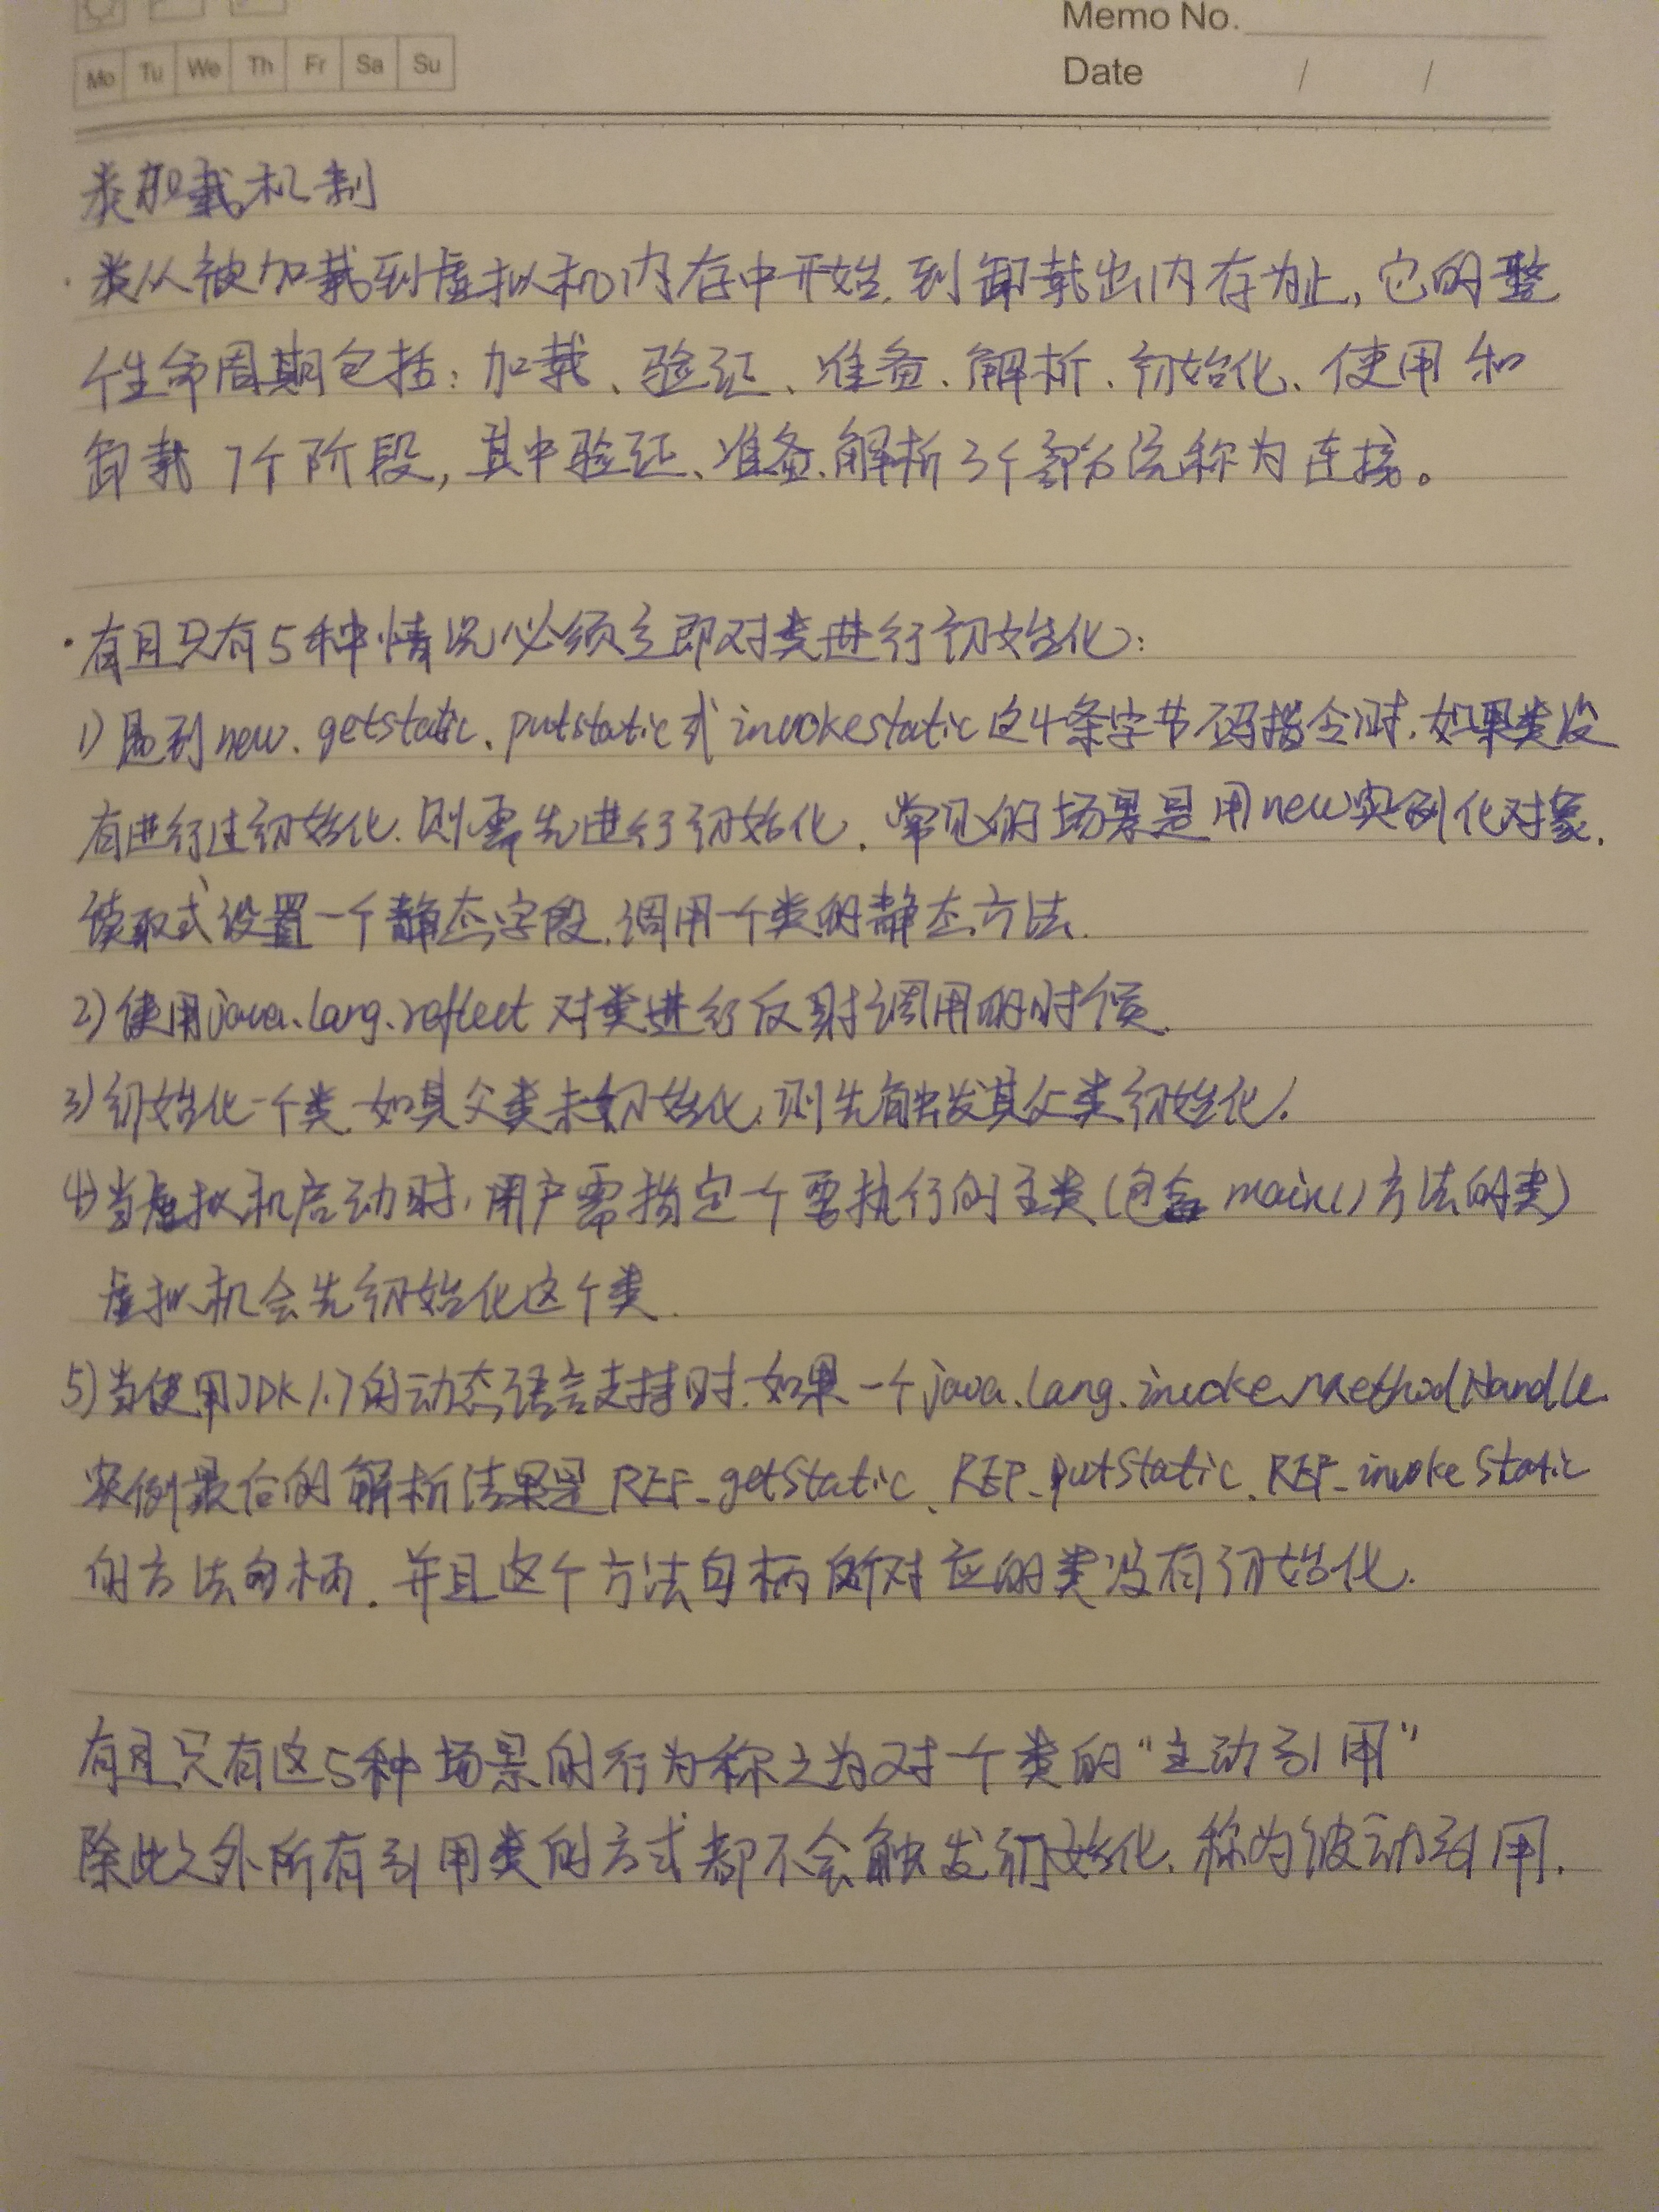 Memo No.
Mo Tu We Th Fr Sa Su
Date / /
类加载机制
· 类从被加载到虚拟机内存中开始,到卸载出内存为止,它的整
个生命周期包括:加载、验证、准备、解析、初始化、使用和
卸载 7个阶段,其中验证、准备、解析3个部分统称为连接。
· 有且只有5种情况必须立即对类进行初始化:
1) 遇到new、getstatic、putstatic或invokestatic这4条字节码指令时,如果类没
有进行过初始化,则需先进行初始化,常见的场景是用new实例化对象,
读取或设置一个静态字段,调用一个类的静态方法.
2) 使用java.lang.reflect 对类进行反射调用的时候.
3) 初始化一个类,如其父类未初始化,则先触发其父类初始化.
4) 当虚拟机启动时,用户需指定一个要执行的主类(包含main()方法的类)
虚拟机会先初始化这个类.
5) 当使用JDK1.7的动态语言支持时,如果一个java.lang.invoke.MethodHandle
实例最后的解析结果是REF_getStatic、REF_putStatic、REF_invokeStatic
的方法句柄,并且这个方法句柄所对应的类没有初始化.
有且只有这5种场景的行为称之为对一个类的“主动引用”
除此之外所有引用类的方式都不会触发初始化,称为被动引用.